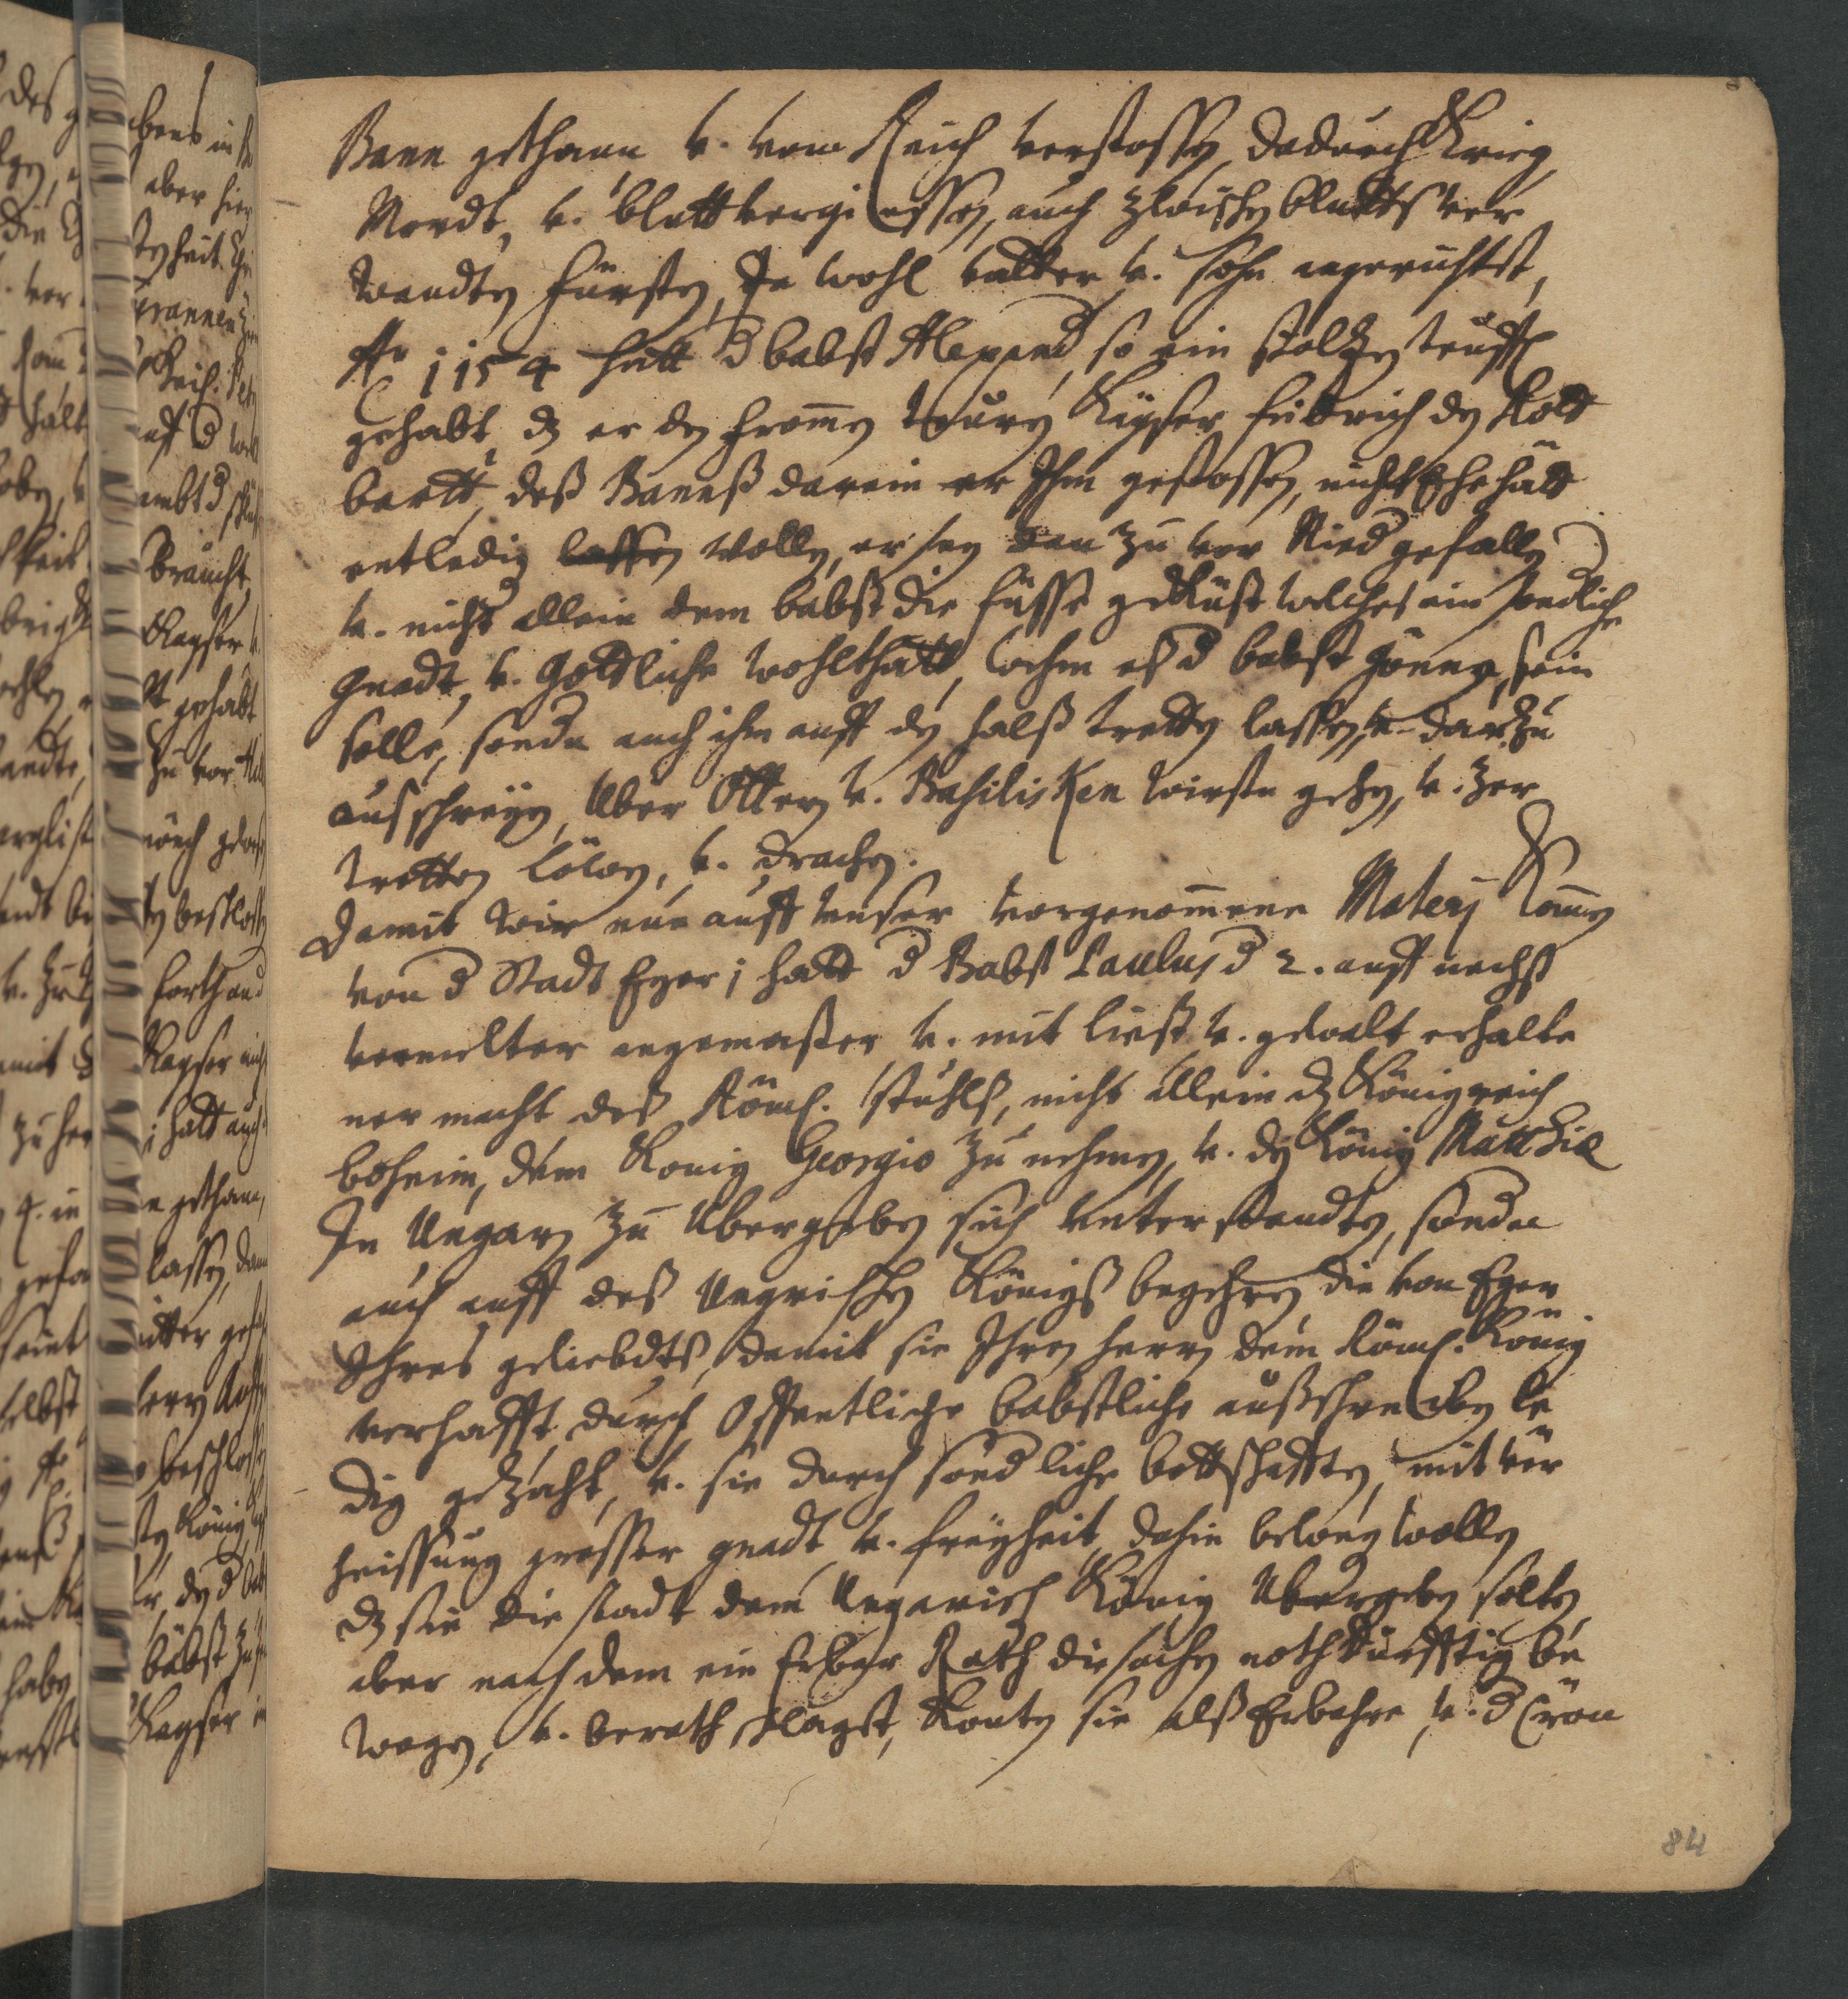 Bann gethann, v. vom Reich verstossen, dadurch Krieg,
Mordt, v. bluttvergiessen, auch zwischen bluttsver
wandten fürsten, Ja wohl vatter v. sohn angerichtet,
Ao 1154 hatt d babst Alexand, so ein stolzen teuffel
gehabt, dz er den fromen teuren Kayser fridrich den Rott
bartt, deß Banneß darein er Ihm gestossen, nicht Ehe hatt
entledig lassen wollen, er sey dan zu vor Nied gefallen
v. nicht allein dem babst die füsse geküst welches ein sondliche
gnadt, v. Gottliche wohlthatt, wehm es d babst gönne, sein
solle, sondn auch ihm auff den halß tretten lassen, v. darzu
ausschreyen, Uber Otter v. Basilisken wirstu gehen, v. zer
tretten löwen, v. drachen.
Damit wir nun auff unser vorgenomene Materj komen
von d Stadt Eger; hatt d Babst Paulus d 2. auff nechst
vermelter angemaster v. mit list v. gewalt erhalte
ner macht des Röml. stuhlß, nicht allein dz Königreich
böheim, dem König Georgio zu nehmen, v. den König Matthiæ
In Ungarn zu Ubergeben sich unterstandten, sondn
auch auff deß Ungrischen Königs begehren die von Eger
Ihres geliebdtß, damit sie Ihren herrn dem Röml. König
verhafft, durch Offentliche babstliche außschreiben le
dig gezehlt, v. sie durch sondliche bottschafften, mit ver
heissung grosser gnadt v. freyheit, dahin bewegen wollen
dz sie die stadt dem Ungarisch König Ubergeben solten
aber nach dem ein Erbar Rath die sachen nothdürfftig be
wogen, v. berathschlagt, konten sie alß Erbahre, v. d Cron
84